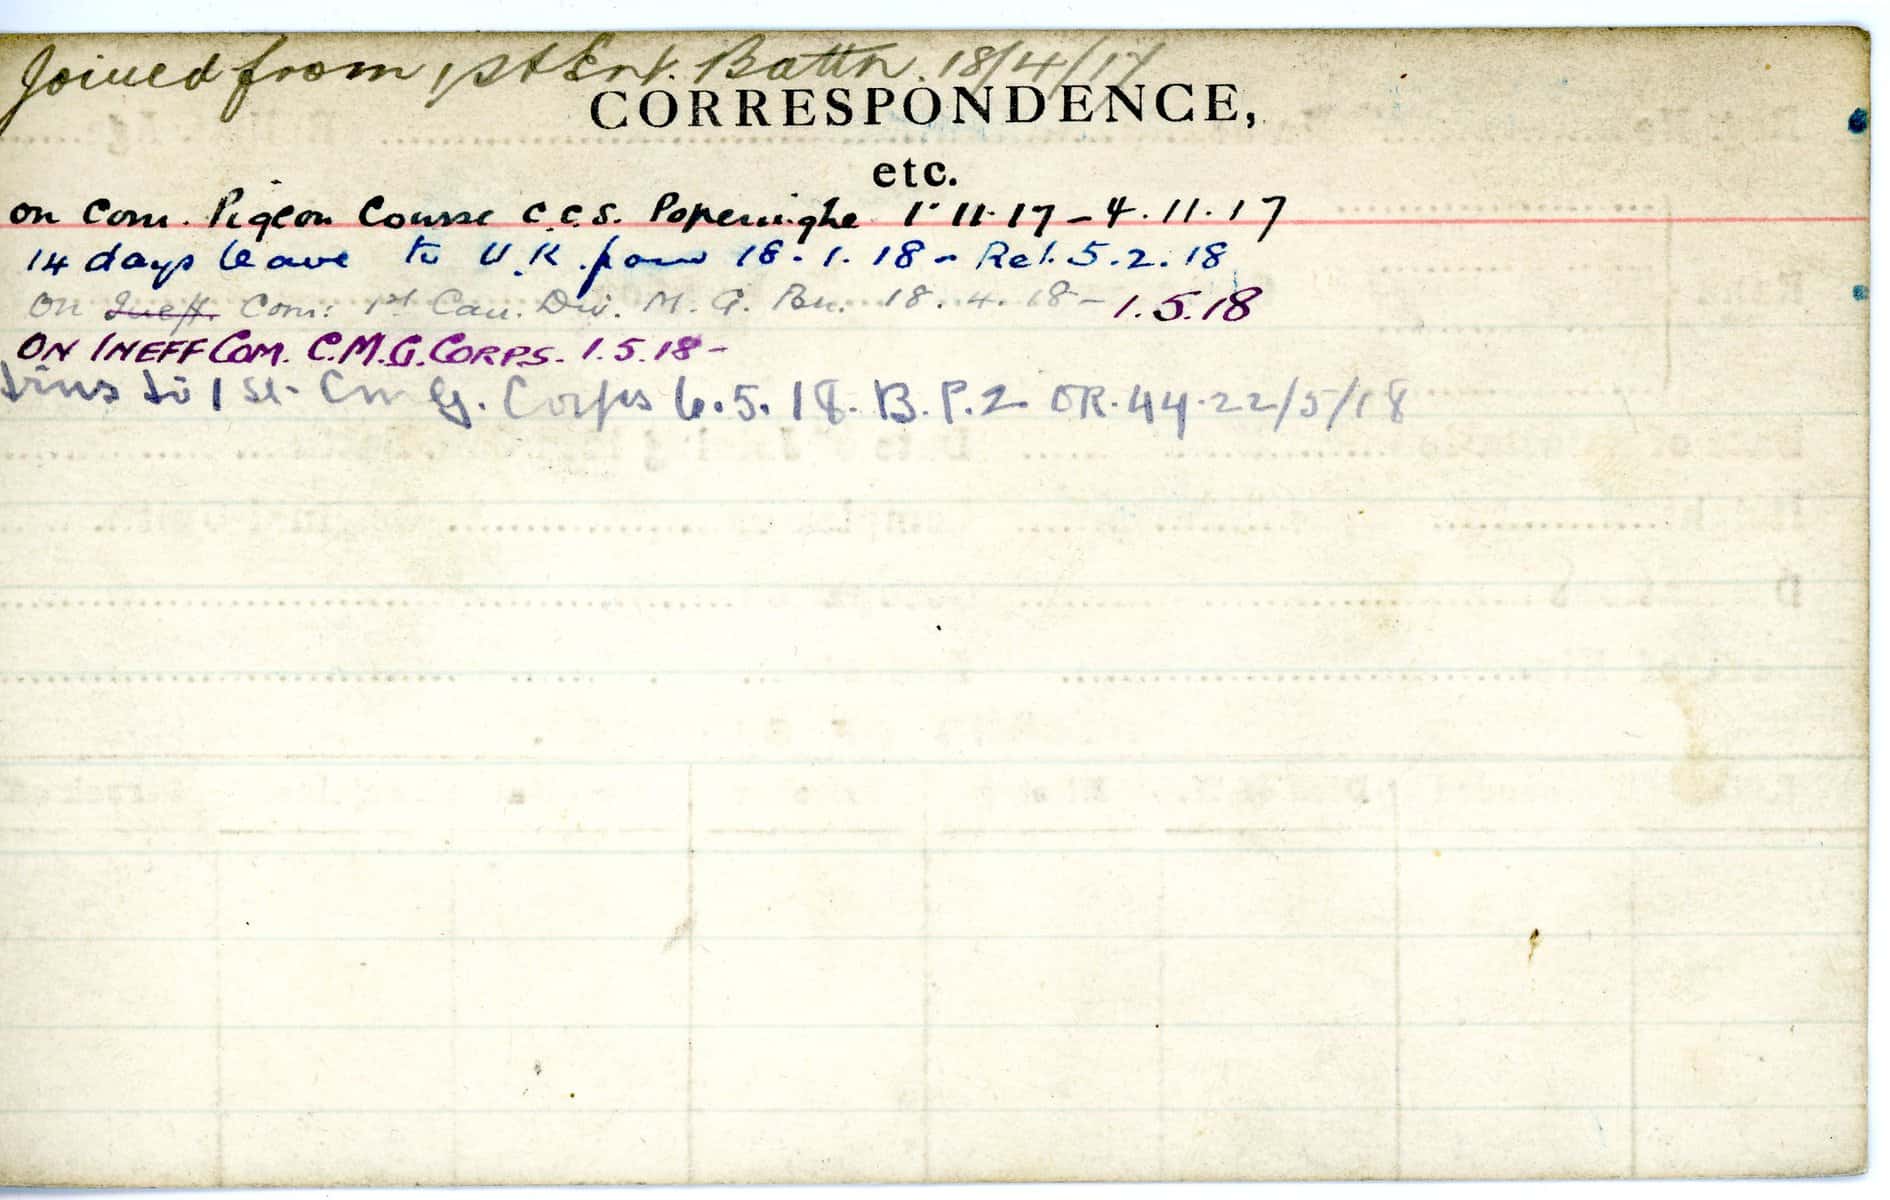 Joined from 1st Ent. Battn. 18/4/17
CORRESPONDENCE,
etc.
on Com. Pigeon Course C.C.S. Poperinghe 1.11.17 - 4.11.17
14 days leave to U.K. from 18.1.18 - Ret. 5.2.18
On Ineff. Com: 1st Can. Div. M. G. Bn. 18.4.18 - 1.5.18
ON INEFF COM. C.M.G. CORPS. 1.5.18 -
trns to 1st. C m G. Corps 6.5.18. B.P.2 OR.44.22/5/18